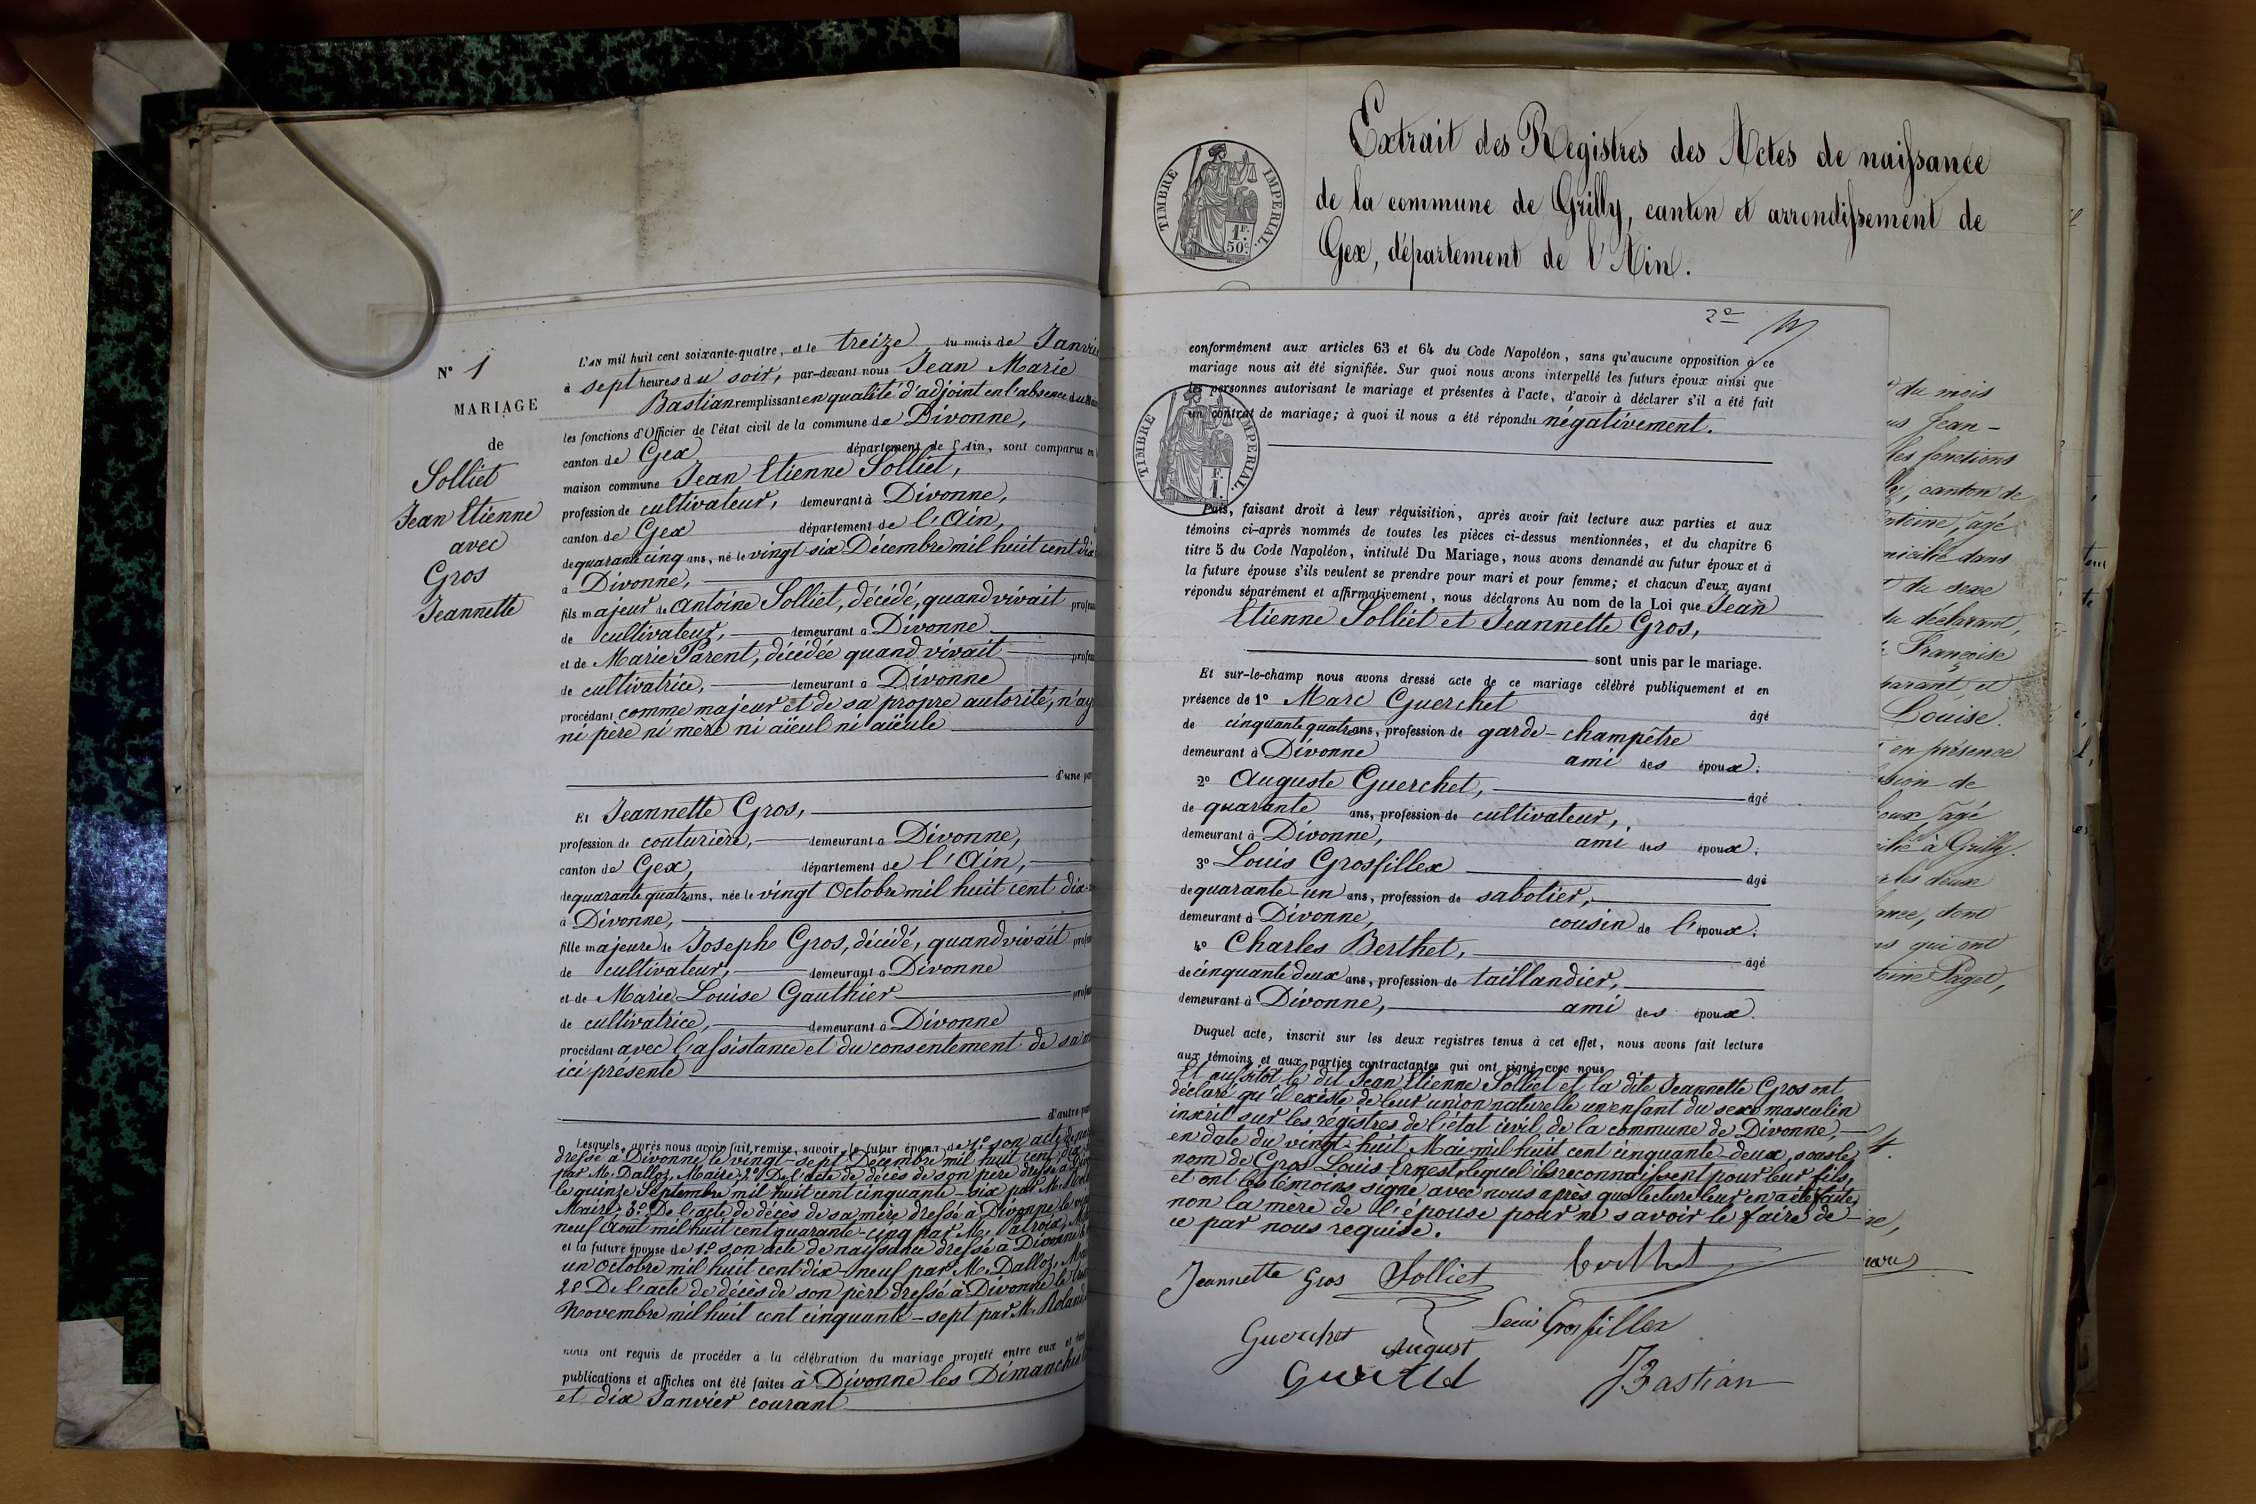 N° 1
MARIAGE
de
Solliet
Jean Etienne
avec
Gros
Jeannette
L'AN mil huit cent soixante-quatre, et le treize du mois de Janvier
à sept heures du soir, par-devant nous Jean Marie
Bastian remplissant en qualité d'adjoint en l'absence du Maire
les fonctions d'Officier de l'état civil de la commune de Divonne,
canton de Gex département de l'Ain, sont comparus en
maison commune Jean Etienne Solliet,
profession de cultivateur, demeurant à Divonne,
canton de Gex département de l'Ain,
de quarante cinq ans, né le vingt-six Décembre mil huit cent dix
à Divonne,
fils majeur de Antoine Solliet, décédé, quand vivait profes
de cultivateur, demeurant à Divonne
et de Marie Parent, décédée quand vivait profes
de cultivatrice, demeurant à Divonne
procédant comme majeur et de sa propre autorité, n'ay
ni père ni mère ni aïeul ni aïeule
d'une par
Et Jeannette Gros,
profession de couturière, demeurant à Divonne,
canton de Gex, département de l'Ain,
de quarante quatre ans, née le vingt Octobre mil huit cent dix-
à Divonne,
fille majeure de Joseph Gros, décédé, quand vivait profes
de cultivateur, demeurant à Divonne
et de Marie Louise Gauthier profes
de cultivatrice, demeurant à Divonne
procédant avec l'assistance et du consentement de sa m
ici présente
d'autre par
Lesquels, après nous avoir fait remise, savoir, le futur époux de 1° son acte de
dressé à Divonne le vingt-sept Décembre mil huit cent dix
par M. Dalloz, Maire 2° De l'acte de décès de son père dressé à
le quinze Septembre mil huit cent cinquante-six par M.
Maire 3° De l'acte de décès de sa mère dressé à Divonne le
neuf Août mil huit cent quarante-cinq par M.
et la future épouse de 1° son acte de naissance dressé à Divonne
un Octobre mil huit cent dix-neuf par M. Dalloz, Ma
2° De l'acte de décès de son père dressé à Divonne le
Novembre mil huit cent cinquante-sept par M. Roland
nous ont requis de procéder à la célébration du mariage projeté entre eux et
publications et affiches ont été faites à Divonne les Dimanches
et dix Janvier courant
TIMBRE IMPERIAL
1F. 50c.
Extrait des Registres des Actes de naissance
de la commune de Grilly, canton et arrondissement de
Gex, département de l'Ain.
2e
conformément aux articles 63 et 64 du Code Napoléon, sans qu'aucune opposition à ce
mariage nous ait été signifiée. Sur quoi nous avons interpellé les futurs époux ainsi que
les personnes autorisant le mariage et présentes à l'acte, d'avoir à déclarer s'il a été fait
un contrat de mariage; à quoi il nous a été répondu négativement.
TIMBRE IMPERIAL
F. 1.
Puis, faisant droit à leur réquisition, après avoir fait lecture aux parties et aux
témoins ci-après nommés de toutes les pièces ci-dessus mentionnées, et du chapitre 6
titre 5 du Code Napoléon, intitulé Du Mariage, nous avons demandé au futur époux et à
la future épouse s'ils veulent se prendre pour mari et pour femme; et chacun d'eux ayant
répondu séparément et affirmativement, nous déclarons Au nom de la Loi que Jean
Etienne Solliet et Jeannette Gros,
sont unis par le mariage.
Et sur-le-champ nous avons dressé acte de ce mariage célébré publiquement et en
présence de 1° Marc Guerchet âgé
de cinquante quatre ans, profession de garde-champêtre
demeurant à Divonne ami des époux;
2° Auguste Guerchet, âgé
de quarante ans, profession de cultivateur,
demeurant à Divonne, ami des époux;
3° Louis Grosfillex âgé
de quarante-un ans, profession de sabotier,
demeurant à Divonne, cousin de l'époux;
4° Charles Berthet, âgé
de cinquante deux ans, profession de taillandier,
demeurant à Divonne, ami des époux.
Duquel acte, inscrit sur les deux registres tenus à cet effet, nous avons fait lecture
aux témoins et aux parties contractantes qui ont signé avec nous
Et aussitôt le dit Jean Etienne Solliet et la dite Jeannette Gros ont
déclaré qu'il existe de leur union naturelle un enfant du sexe masculin
inscrit sur les régistres de l'état civil de la commune de Divonne,
en date du vingt-huit Mai mil huit cent cinquante-deux, sous le
nom de Gros Louis Ernest, lequel ils reconnaissent pour leur fils,
et ont les témoins signé avec nous après que lecture leur en a été faite,
non la mère de l'épouse pour ne savoir le faire de
ce par nous requise.
Jeannette Gros Solliet Berthet
Guerchet Louis Grosfillex
August
Guerchet JBastian
du mois
us Jean-
les fonctions
canton de
ntoine, âgé
micilié dans
du sexe
du déclarant,
Françoise
parant et
Louise.
en présence
sion de
oux, âgé
cilié à Grilly.
les deux
ance, dont
qui ont
toine Paget,